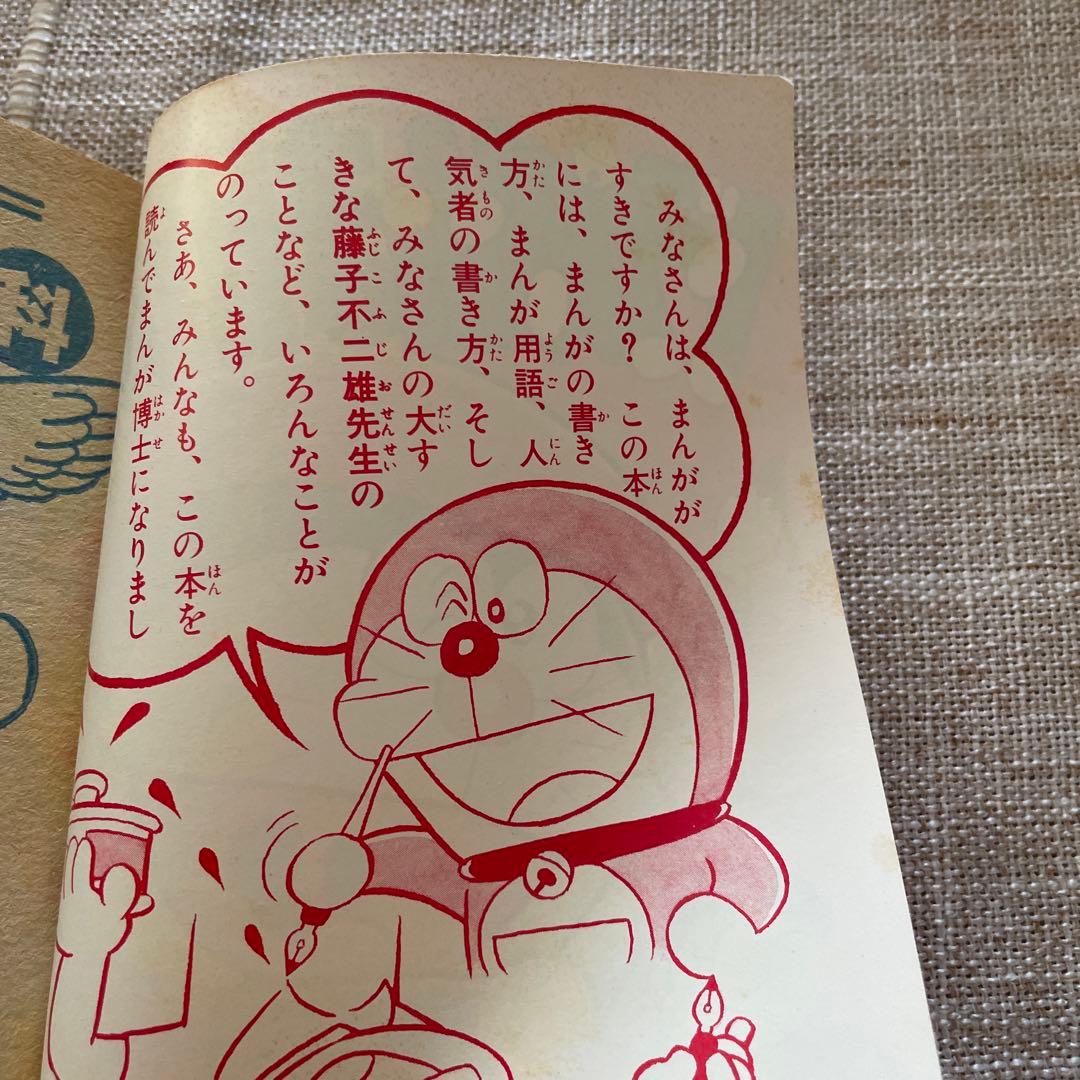 みなさんは、まんがが
すきですか? この本
には、まんがの書き
方、まんが用語、人
気者の書き方、そし
て、みなさんの大す
きな藤子不二雄先生の
ことなど、いろんなことが
のっています。
さあ、みんなも、この本を
読んでまんが博士になりまし